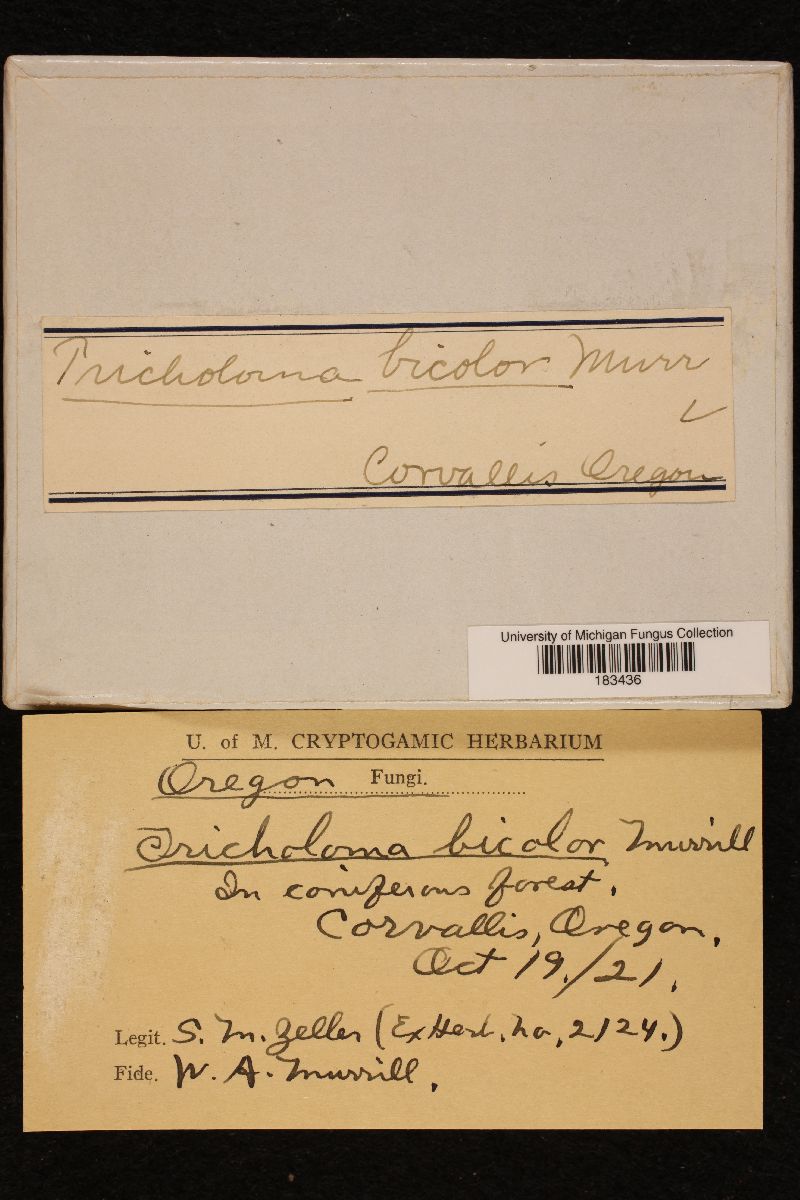 Tricholoma bicolor Murr
Corvallis Oregon
University of Michigan Fungus Collection
183436
U. of M. CRYPTOGAMIC HERBARIUM
Oregon Fungi.
Tricholoma bicolor Murrill
In coniferous forest.
Corvallis, Oregon.
Oct 19./21.
Legit. S. M. Zeller (Ex Herb. no. 2124.)
Fide. W. A. Murrill.